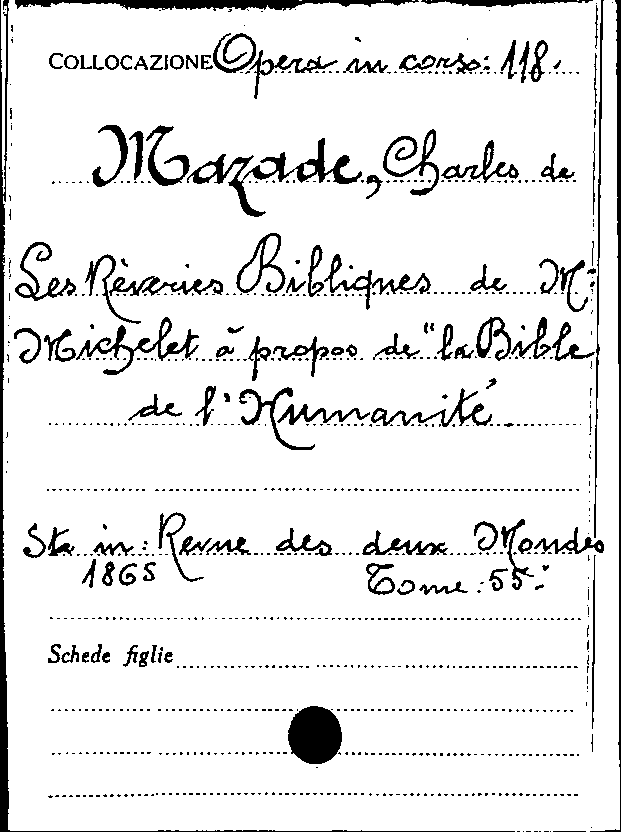 COLLOCAZIONE Opera in corso: 118.
Mazade, Charles de
Les Rêveries Bibliques de M.
Michelet à propos de "la Bible
de l'Humanité.
Sta in: Revue des deux Mondes
1865 Tome: 55.
Schede figlie